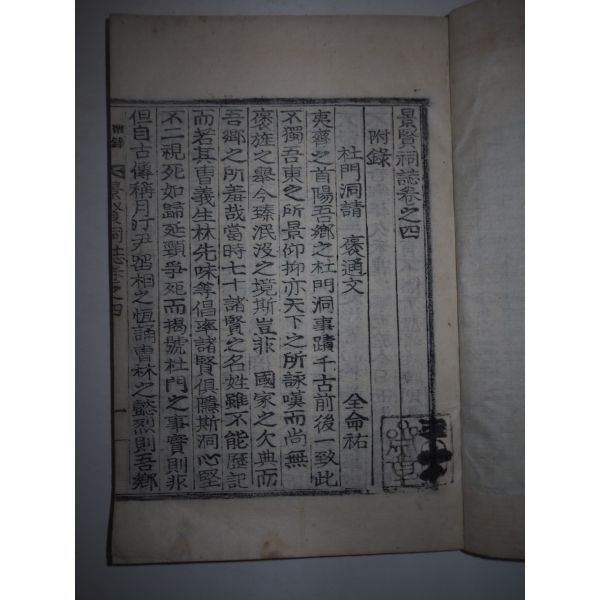 景賢祠誌卷之四
附錄
杜門洞請 褒通文 全命祐
夷齊之首陽吾鄉之杜門洞事蹟千古前後一致此
不獨吾東之所景仰抑亦天下之所詠嘆而尚無
褒旌之舉今臻泯沒之境斯豈非 國家之欠典而
吾鄉之所羞哉當時七十諸賢之名姓雖不能歷記
而若其曺義生林先味等倡率諸賢俱隱斯洞心堅
不二視死如歸延頸爭死而揭號杜門之事實則非
但自古傳稱月汀尹留相之恆誦曺林之懿烈則吾鄉
附錄
景賢祠誌卷之四
一